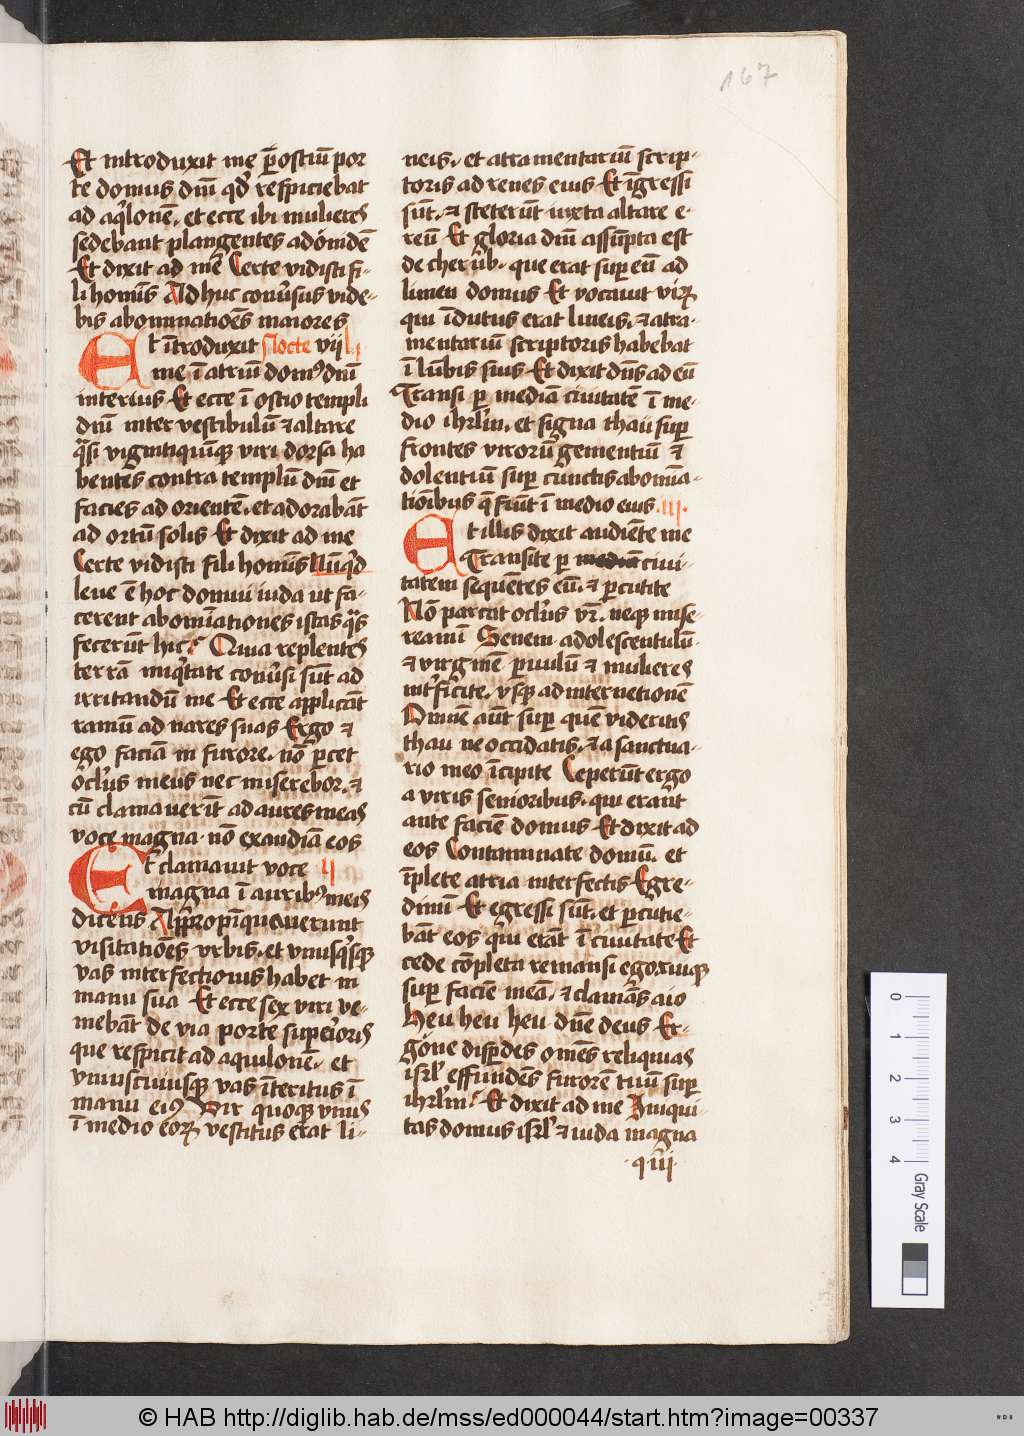 167
Et introduxit me p̄ ostiū por
te domus dn̄i qd̓ respiciebat
ad aq̓lonē. et ecce ibi mulieres
sedebant plangentes adónidē
Et dixit ad me Certe vidisti fi-
li homīs Ad huc conu̓sus vide-
bis abominatiōes maiores
Et ītroduxit Nocte viij l j
me ī atriū domꝰ dn̄i
interius Et ecce ī ostio templi
dn̄i inter vestibulū ⁊ altare
q̄si vigintiquīqꝫ viri dorsa ha
bentes contra templū dn̄i et
facies ad orientē. et adorabāt
ad ortū solis Et dixit ad me
Certe vidisti fili homīs Nūq̓d
leue ē hoc domui iuda ut fa-
cerent abomīationes istas q̄s
fecerūt hic Quia replentes
terrā iniq̓tate conu̓si sūt ad
irritandū me Et ecce applicāt
ramū ad nares suas Ergo ⁊
ego faciā in furore. nō p̄cet
oc̓lus meus nec miserebor. ⁊
cū clamauerīt ad aures meas
voce magna. nō exaudiā eos
Et clamauit voce ij
magna ī auribꝰ meis
dicens Appropīquauerunt
visitatiōes vrbis. et vnusq̓sqꝫ
vas interfectionis habet in
manu sua Et ecce sex viri ve-
niebāt de via porte superioris
que respicit ad aquilonē. et
vniuscuiusqꝫ vas īteritus ī
manu eiꝰ Vir quoqꝫ vnus
ī medio eoꝝ vestitus erat li-
neis. et atramentariū scrip-
toris ad renes eius Et īgressi
sūt. ⁊ steterūt iuxta altare e-
reū Et gloria dn̄i assūpta est
de cherūb. que erat sup eū ad
limen domus Et vocauit viꝝ
qui īdutus erat lineis. ⁊ atra-
mentariū scriptoris habebat
ī lūbis suis Et dixit dn̄s ad eū
Transi ꝑ mediā ciuitatē ī me-
dio ihrl̓m. et signa thau sup
frontes virorū gementiū ⁊
dolentiū sup cunctis abomīa-
tiōibus q̄ fiūt ī medio eius. iij.
Et illis dixit audiēte me
Transite ꝑ mediā ciui-
tatem sequētes eū. ⁊ ꝑcutite
Nō parcat oc̓lus vr̄. neqꝫ mise-
reamī Senem adolescentulū.
⁊ virginē ꝑuulū ⁊ mulieres
int̓ficite. vsqꝫ ad internetionē
Omnē aūt sup quē videritis
thau ne occidatis. ⁊ a sanctua-
rio meo īcipite Ceperūt ergo
a viris senioribus. qui erant
ante faciē domus Et dixit ad
eos Contaminate domū. et
īplete atria interfectis Egre-
dimī Et egressi sūt. et ꝑcutie-
bāt eos qui erāt ī ciuitate Et
cede cōpleta remansi ego ruiqꝫ
sup faciē meā. ⁊ clamās aio
Heu heu heu dn̄e deus Er-
góne disꝑdes omēs reliquias
isrl̓ effundens furorē tuū sup
ihrl̓m Et dixit ad me Iniqui-
tas domus isrl̓ ⁊ iuda magna
0 1 2 3 4 Gray Scale
© HAB http://diglib.hab.de/mss/ed000044/start.htm?image=00337